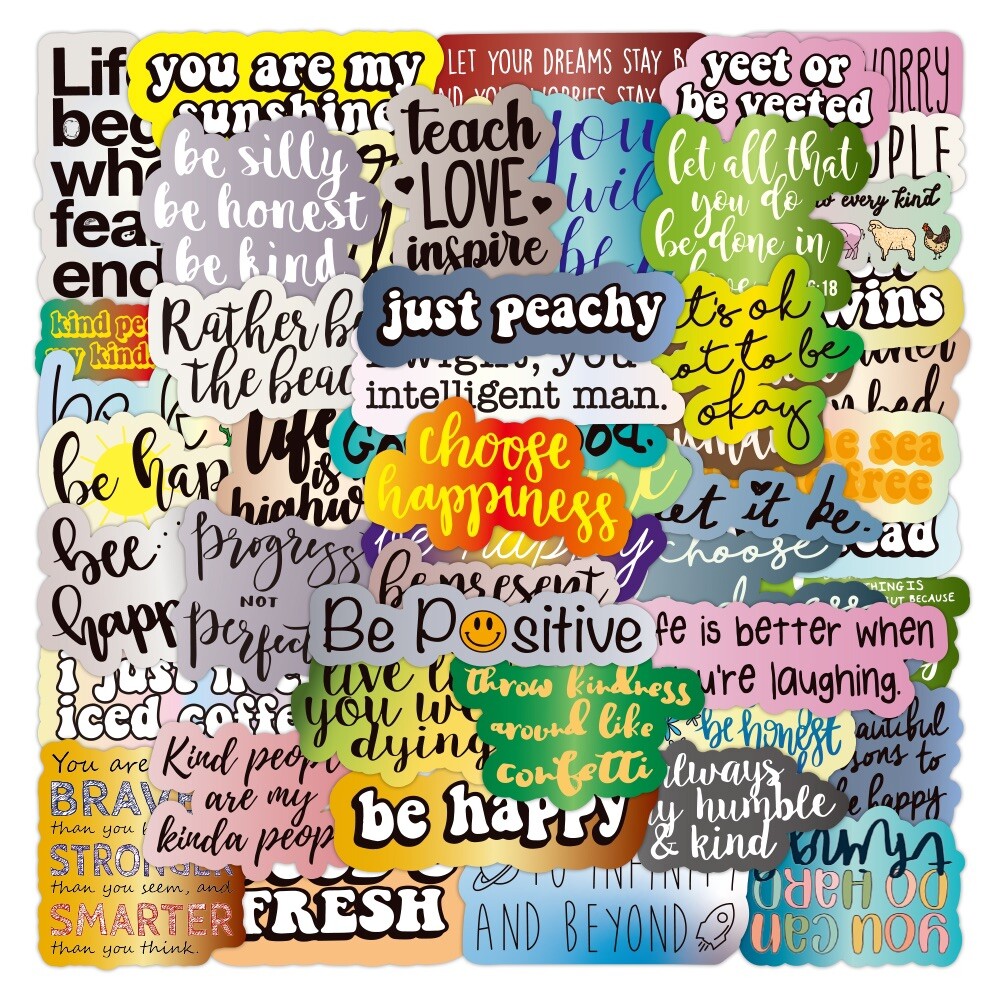 Life
begins
where
fear
ends
you are my
sunshine
LET YOUR DREAMS STAY BIG
AND YOUR WORRIES STAY
yeet or
be yeeted
WORRY
be silly
be honest
be kind
teach
LOVE
inspire
you
will
be
let all that
you do
be done in
6:18
PEOPLE
to every kind
kind peo
my kinda
Rather be
the beach
just peachy
Dwight, you
intelligent man.
it's ok
not to be
okay
wins
bed
be hap
life
is
highway
choose
happiness
let it be.
sea
free
be happy
choose
bee
happ
Progress
NOT
Perfect
be present
Be Positive
THING IS
BUT BECAUSE
life is better when
you're laughing.
I just need
iced coffee
live l
you we
dying
throw kindness
around like
confetti
be honest
beautiful
sons to
be happy
You are
BRAVER
than you b
STRONGER
than you seem, and
SMARTER
than you think.
Kind people
are my
kinda people
be happy
always
stay humble
& kind
FRESH
TO INFINITY
AND BEYOND
you can
DO HARD